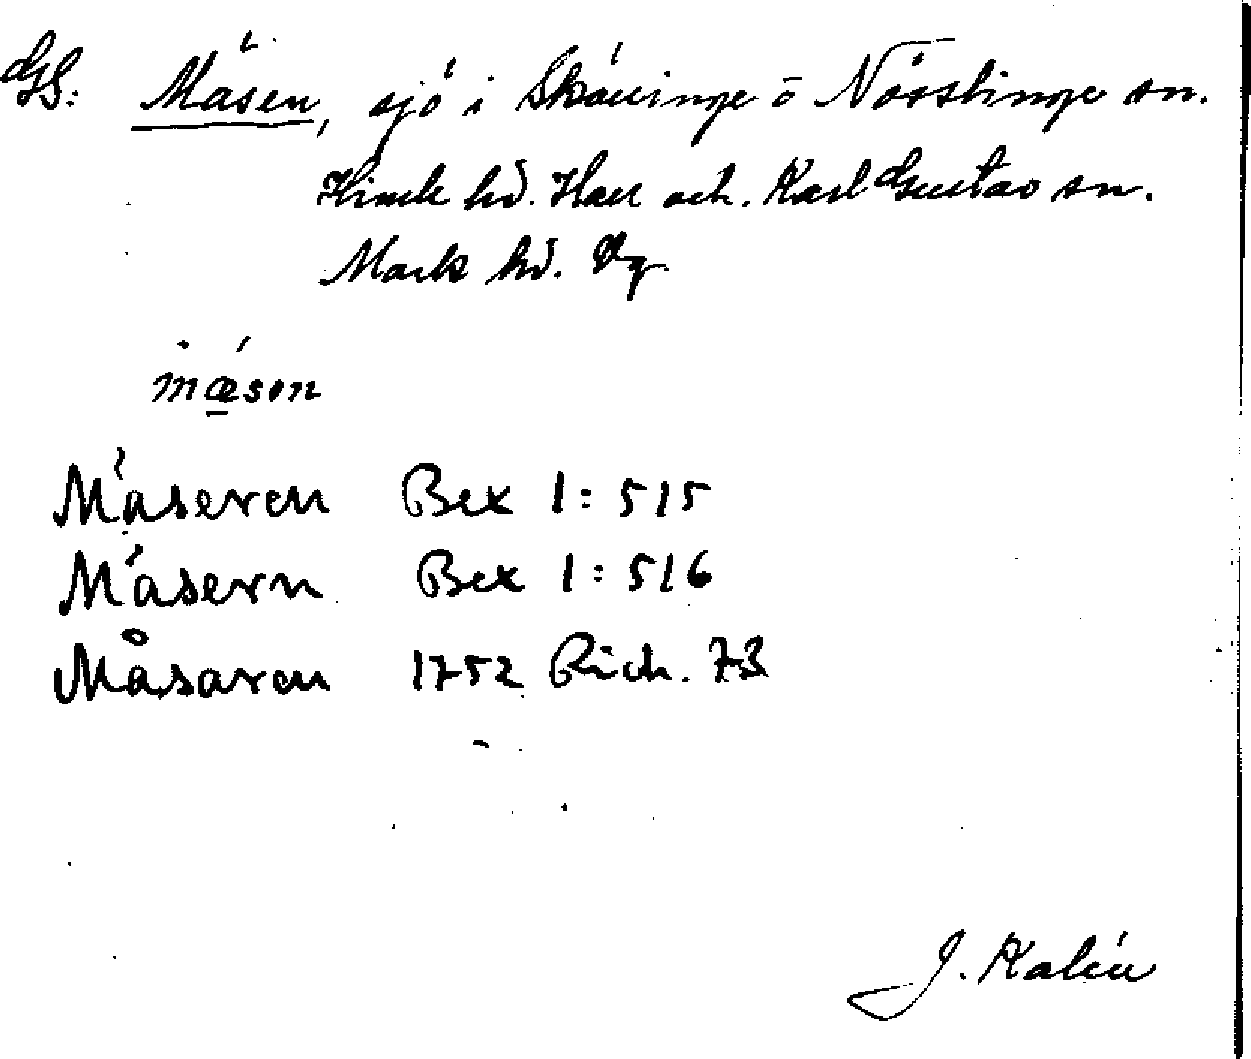 GS: Måsen, sjö i Skällinge o Nösslinge sn.
Himle hd. Hall och. Karl Gustav sn.
Mark hd. Vg
mæsen
Måseren Bex 1:515
Måsern Bex 1:516
Måsaren 1752 Rich. 73
J. Kalén